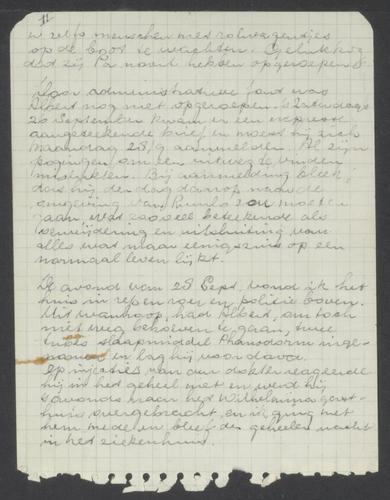 11
er zelfs menschen met rolwagentjes
op de boot te wachten. Gelukkig
dat zij Pa nooit hebben opgeroepen
Door administratieve fout was
Albert nog niet opgeroepen. Zaterdags
26 September kwam er een expresse
aangeteekende brief en moest hij zich
Maandag 28/9 aanmelden. Al zijn
pogingen om een uitweg te vinden
mislukten. Bij aanmelding bleek,
dat hij den dag daarop naar de
omgeving van zou moeten
gaan, wat zooveel beteekende als
verwijdering en uitsluiting van
alles wat maar eenigszins op een
normaal leven lijkt.
De avond van 28 Sept. vond ik het
huis in rep en roer en politie boven.
Uit wanhoop, had Albert, om toch
niet weg behoeven te gaan, twee
slaapmiddel Phanodorm inge-
nomen en lag hij voor dood.
Op injecties van den dokter reageerde
hij in het geheel niet en werd hij
's avonds naar het Wilhelmina gast-
huis overgebracht, en ik ging met
hem mede en bleef den geheelen nacht
in het ziekenhuis.